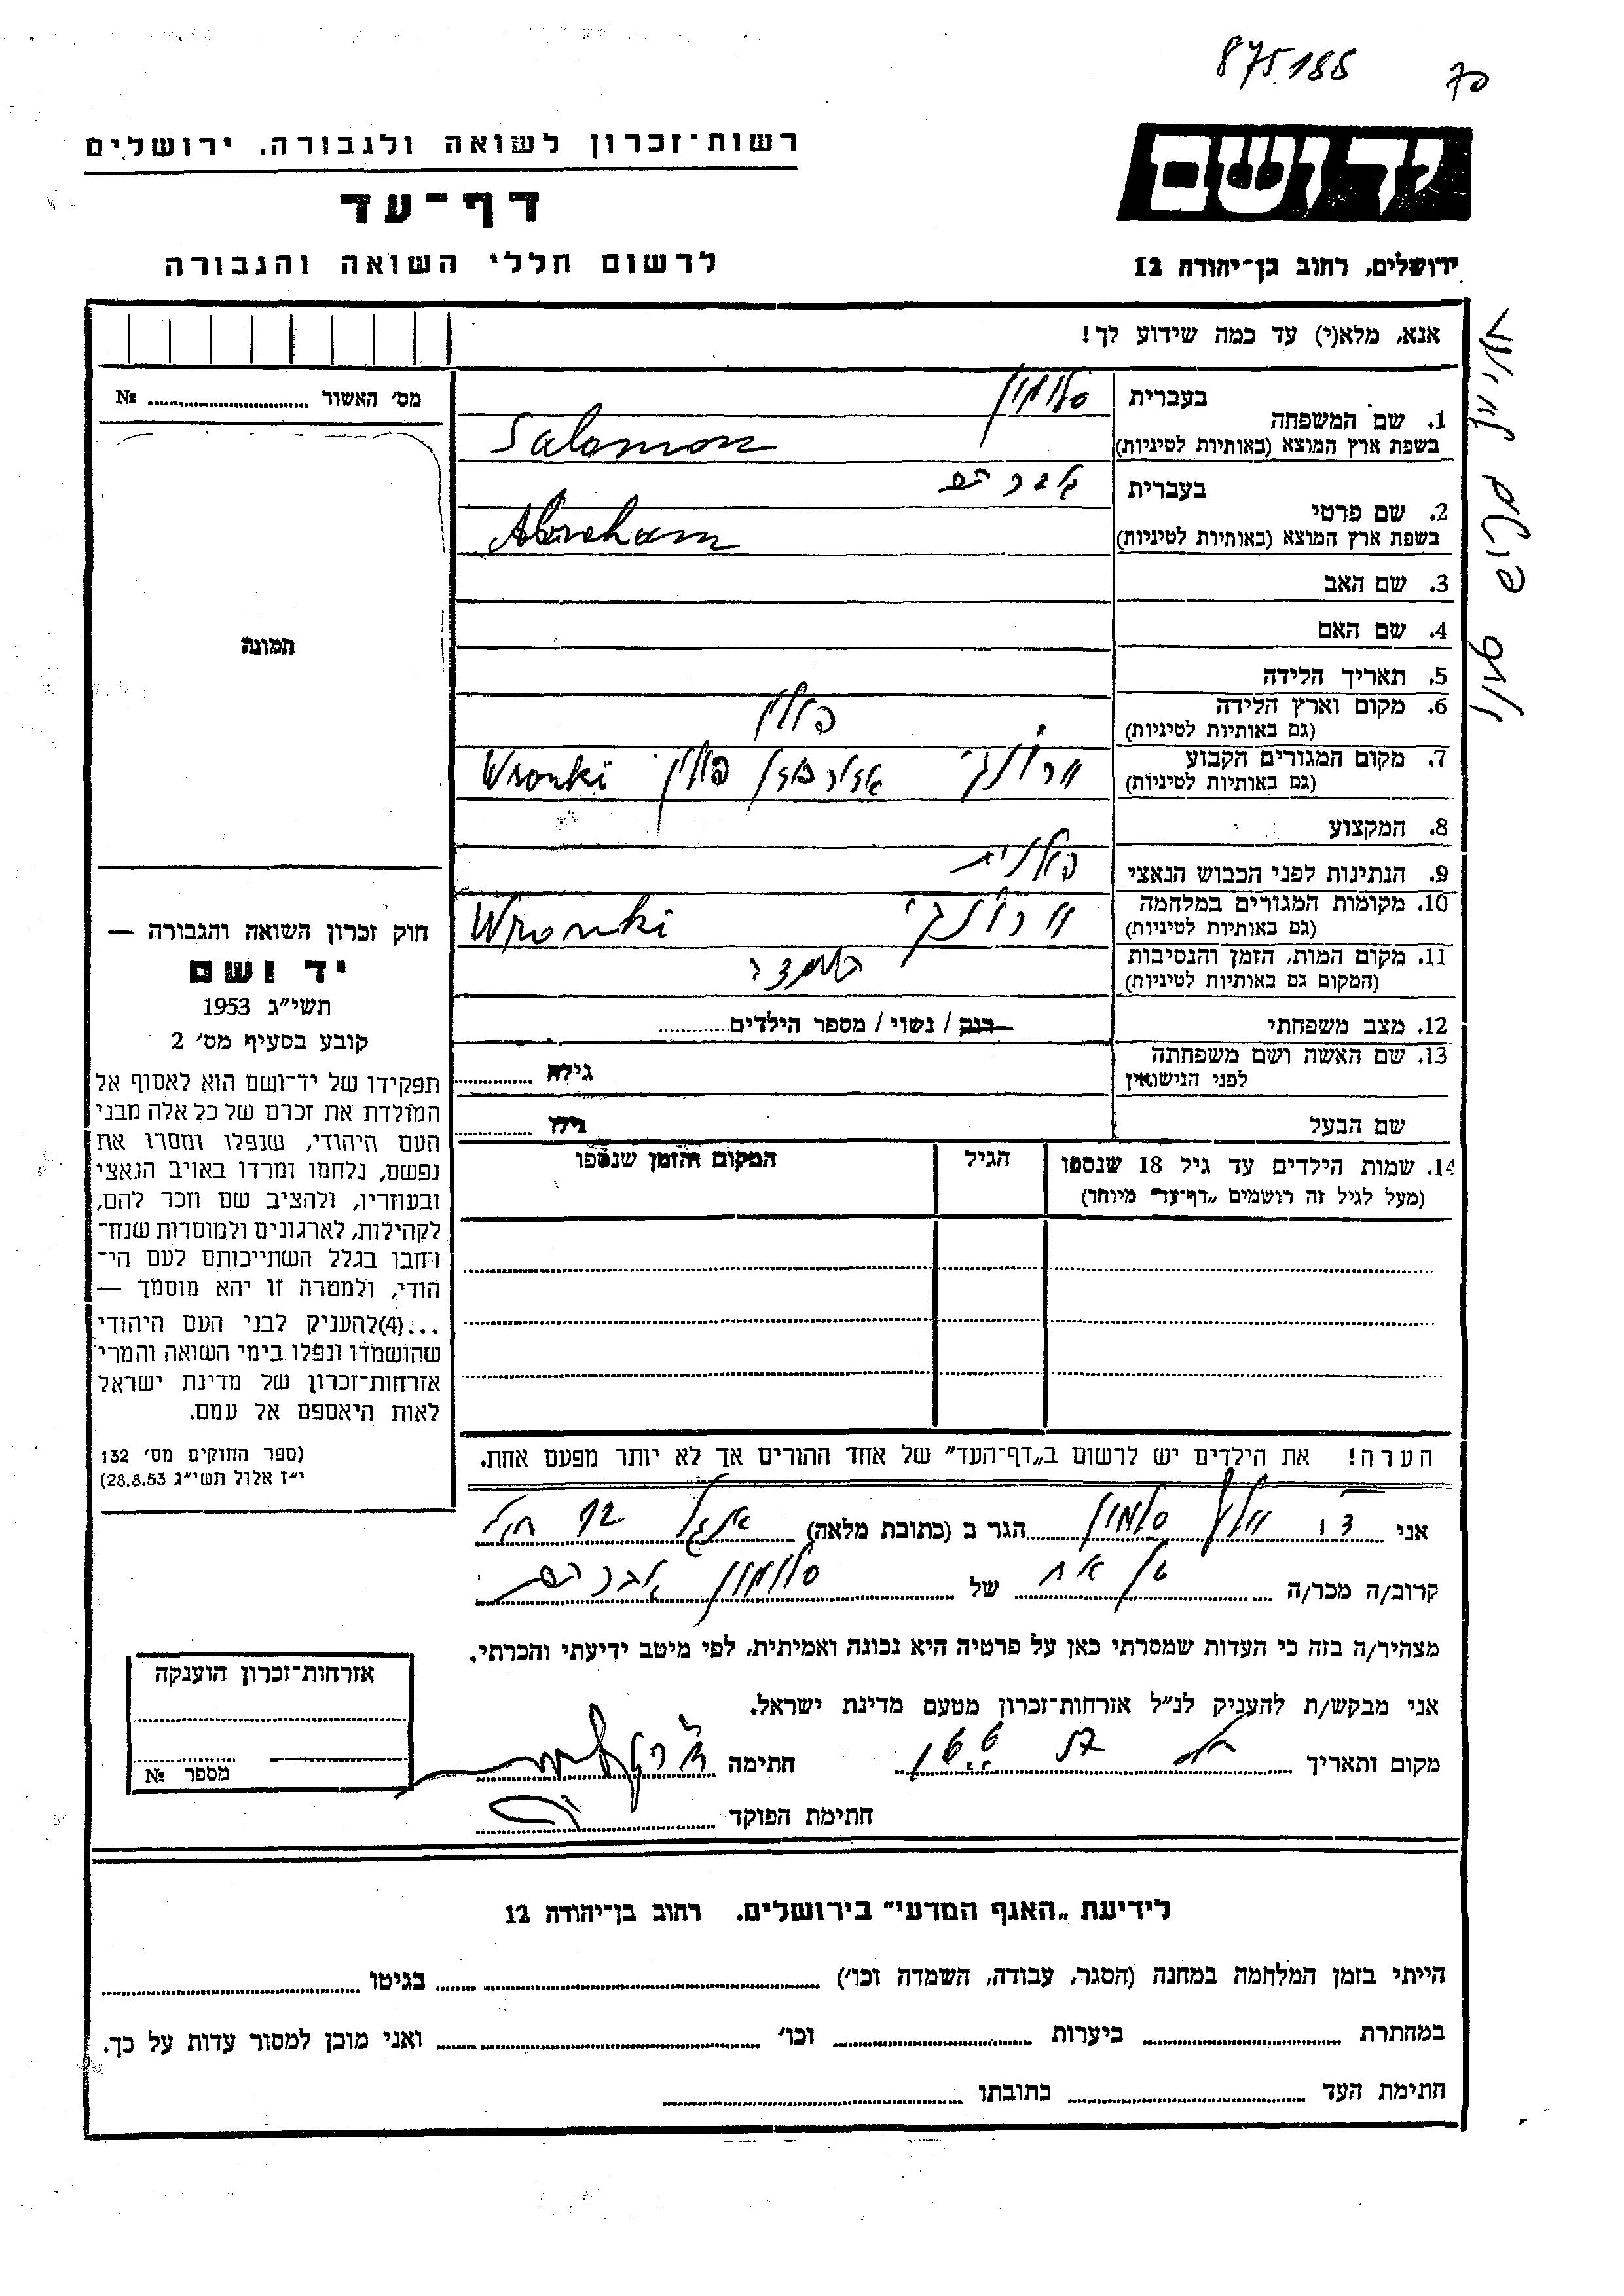 875.188 70
יד ושם
ירושלים, רחוב בן־יהודה 12
רשות־זכרון לשואה ולגבורה, ירושלים
דף־עד
לרשום חללי השואה והגבורה
אנא, מלא(י) עד כמה שידוע לך!
1. שם המשפחה
בעברית סלומון
בשפת ארץ המוצא (באותיות לטיניות) Salomon
2. שם פרטי
בעברית אברהם
בשפת ארץ המוצא (באותיות לטיניות) Abraham
3. שם האב
4. שם האם
5. תאריך הלידה
6. מקום וארץ הלידה פולין
(גם באותיות לטיניות)
7. מקום המגורים הקבוע ורונקי פולין Wronki
(גם באותיות לטיניות)
8. המקצוע
9. הנתינות לפני הכבוש הנאצי פולנית
10. מקומות המגורים במלחמה ורונקי Wronki
(גם באותיות לטיניות)
11. מקום המות, הזמן והנסיבות
(המקום גם באותיות לטיניות)
12. מצב משפחתי רוק / נשוי / מספר הילדים
13. שם האשה ושם משפחתה גילה
לפני הנישואין
שם הבעל גילו
14. שמות הילדים עד גיל 18 שנספו הגיל המקום והזמן שנספו
(מעל לגיל זה רושמים „דף־עד״ מיוחד)
הערה! את הילדים יש לרשום ב„דף־העד״ של אחד ההורים אך לא יותר מפעם אחת.
מס׳ האשור №
תמונה
חוק זכרון השואה והגבורה —
יד ושם
תשי״ג 1953
קובע בסעיף מס׳ 2
תפקידו של יד־ושם הוא לאסוף אל
המולדת את זכרם של כל אלה מבני
העם היהודי, שנפלו ומסרו את
נפשם, נלחמו ומרדו באויב הנאצי
ובעוזריו, ולהציב שם וזכר להם,
לקהילות, לארגונים ולמוסדות שנח־
רבו בגלל השתייכותם לעם הי־
הודי, ולמטרה זו יהא מוסמך —
...(4)להעניק לבני העם היהודי
שהושמדו ונפלו בימי השואה והמרי
אזרחות־זכרון של מדינת ישראל
לאות היאספם אל עמם.
(ספר החוקים מס׳ 132
י״ז אלול תשי״ג 28.8.53)
אני סלומון הגר ב (כתובת מלאה)
קרוב/ה מכר/ה בן אח של סלומון אברהם
מצהיר/ה בזה כי העדות שמסרתי כאן על פרטיה היא נכונה ואמיתית, לפי מיטב ידיעתי והכרתי.
אני מבקש/ת להעניק לנ״ל אזרחות־זכרון מטעם מדינת ישראל.
מקום ותאריך חתימה
חתימת הפוקד
אזרחות־זכרון הוענקה
מספר №
לידיעת „האגף המדעי״ בירושלים. רחוב בן־יהודה 12
הייתי בזמן המלחמה במחנה (הסגר, עבודה, השמדה וכו׳) בגיטו
במחתרת ביערות וכו׳ ואני מוכן למסור עדות על כך.
חתימת העד כתובתו